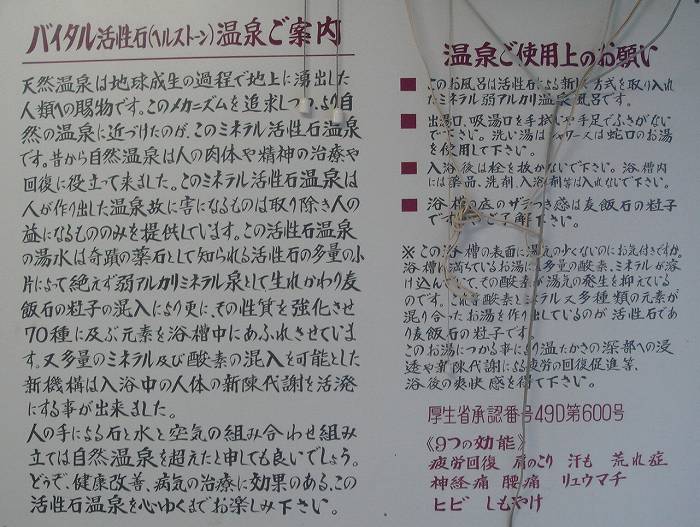 バイタル活性石(ヘルストーン)温泉ご案内
天然温泉は地球成生の過程で地上に湧出した
人類への賜物です。このメカニズムを追求しつつより自
然の温泉に近づけたのが、このミネラル活性石温泉
です。昔から自然温泉は人の肉体や精神の治療や
回復に役立って来ました。このミネラル活性石温泉は
人が作り出した温泉故に害になるものは取り除き人の
益になるもののみを提供しています。この活性石温泉
の湯水は奇蹟の薬石として知られる活性石の多量の小
片によって絶えず弱アルカリミネラル泉として生れかわり麦
飯石の粒子の混入により更に、その性質を強化させ
70種に及ぶ元素を浴槽中にあふれさせていま
す。又多量のミネラル及び酸素の混入を可能とした
新機構は入浴中の人体の新陳代謝を活発
にする事が出来ました。
人の手による石と水と空気の組み合わせ組み
立ては自然温泉を超えたと申しても良いでしょう。
どうで、健康改善、病気の治療に効果のある、この
活性石温泉を心ゆくまでお楽しみ下さい。
温泉ご使用上のお願い
■ このお風呂は活性石による新しい方式を取り入れ
たミネラル弱アルカリ温泉風呂です。
■ 出湯口、吸湯口を手拭いや手足でふさがない
で下さい。洗い湯はシャワー又は蛇口のお湯
を使用して下さい。
■ 入浴後は栓を抜かないで下さい。浴槽内
には薬品、洗剤、入浴剤等は入れないで下さい。
■ 浴槽の底のザラつき感は麦飯石の粒子
です。ご了解下さい。
※この浴槽の表面に湯気の少くないのにお気付きですか。
浴槽に満ちているお湯に多量の酸素、ミネラルが溶
け込んでいて、その酸素が湯気の発生を抑えている
のです。これ等酸素とミネラル又多種類の元素が
混り合ったお湯を作り出しているのが活性石であ
り麦飯石の粒子です。
このお湯につかる事により温たかさの深部への浸
透や新陳代謝による疲労の回復促進等、
浴後の爽快感を得て下さい。
厚生省承認番号49D第600号
《9つの効能》
疲労回復 肩のこり 汗も 荒れ症
神経痛 腰痛 リュウマチ
ヒビ しもやけ